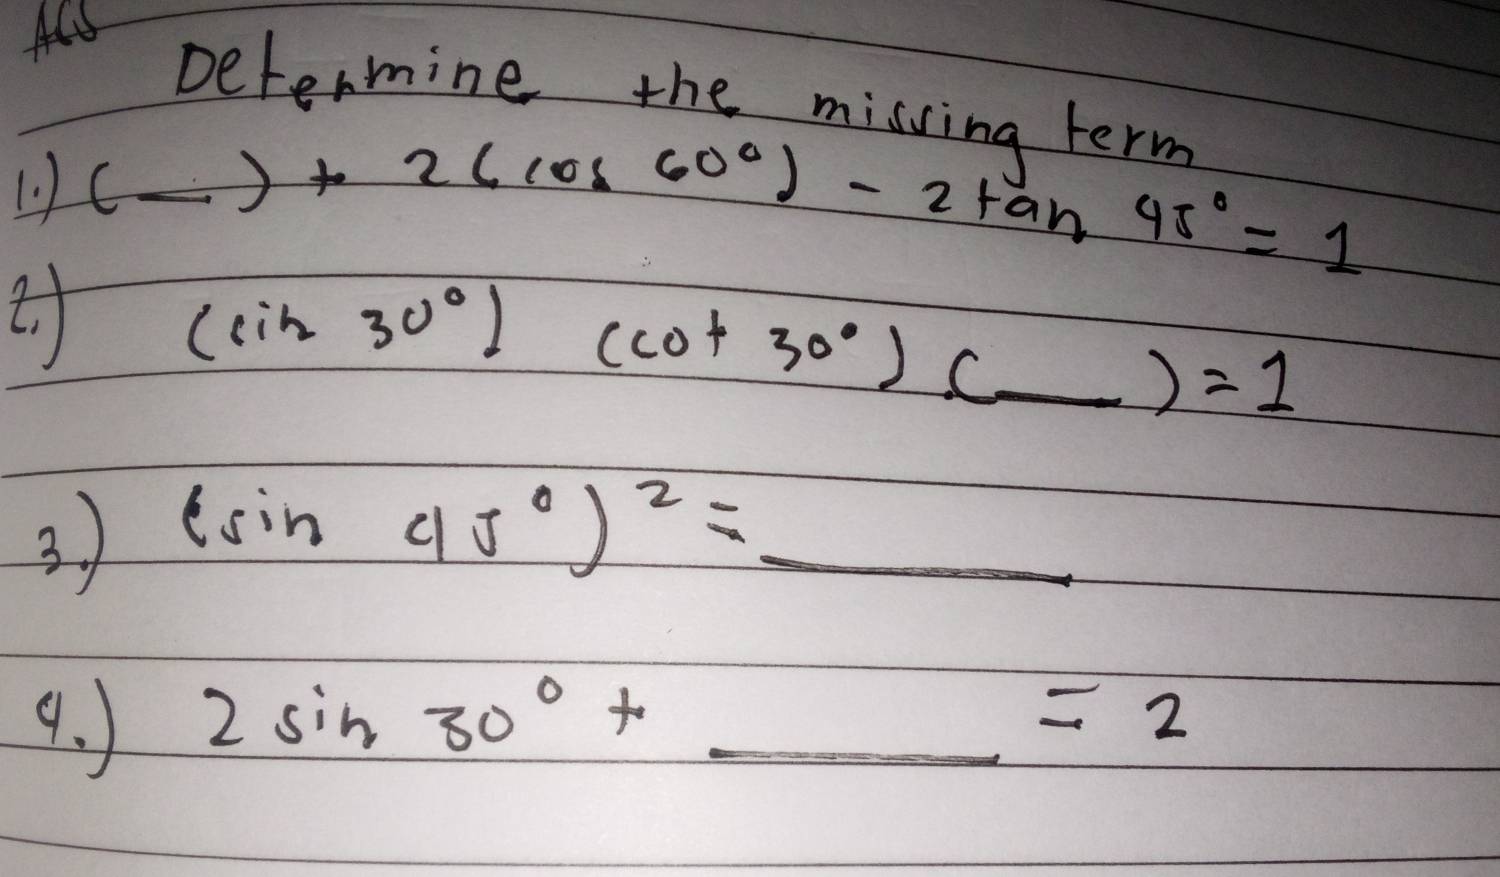 ACS
Determine the missing term
1.) (__) + 2(cos 60°) - 2tan 45° = 1
2.) (sin 30°) (cot 30°) (___) = 1
3.) (sin 45°)² = ______
4.) 2 sin 30° + ______ = 2